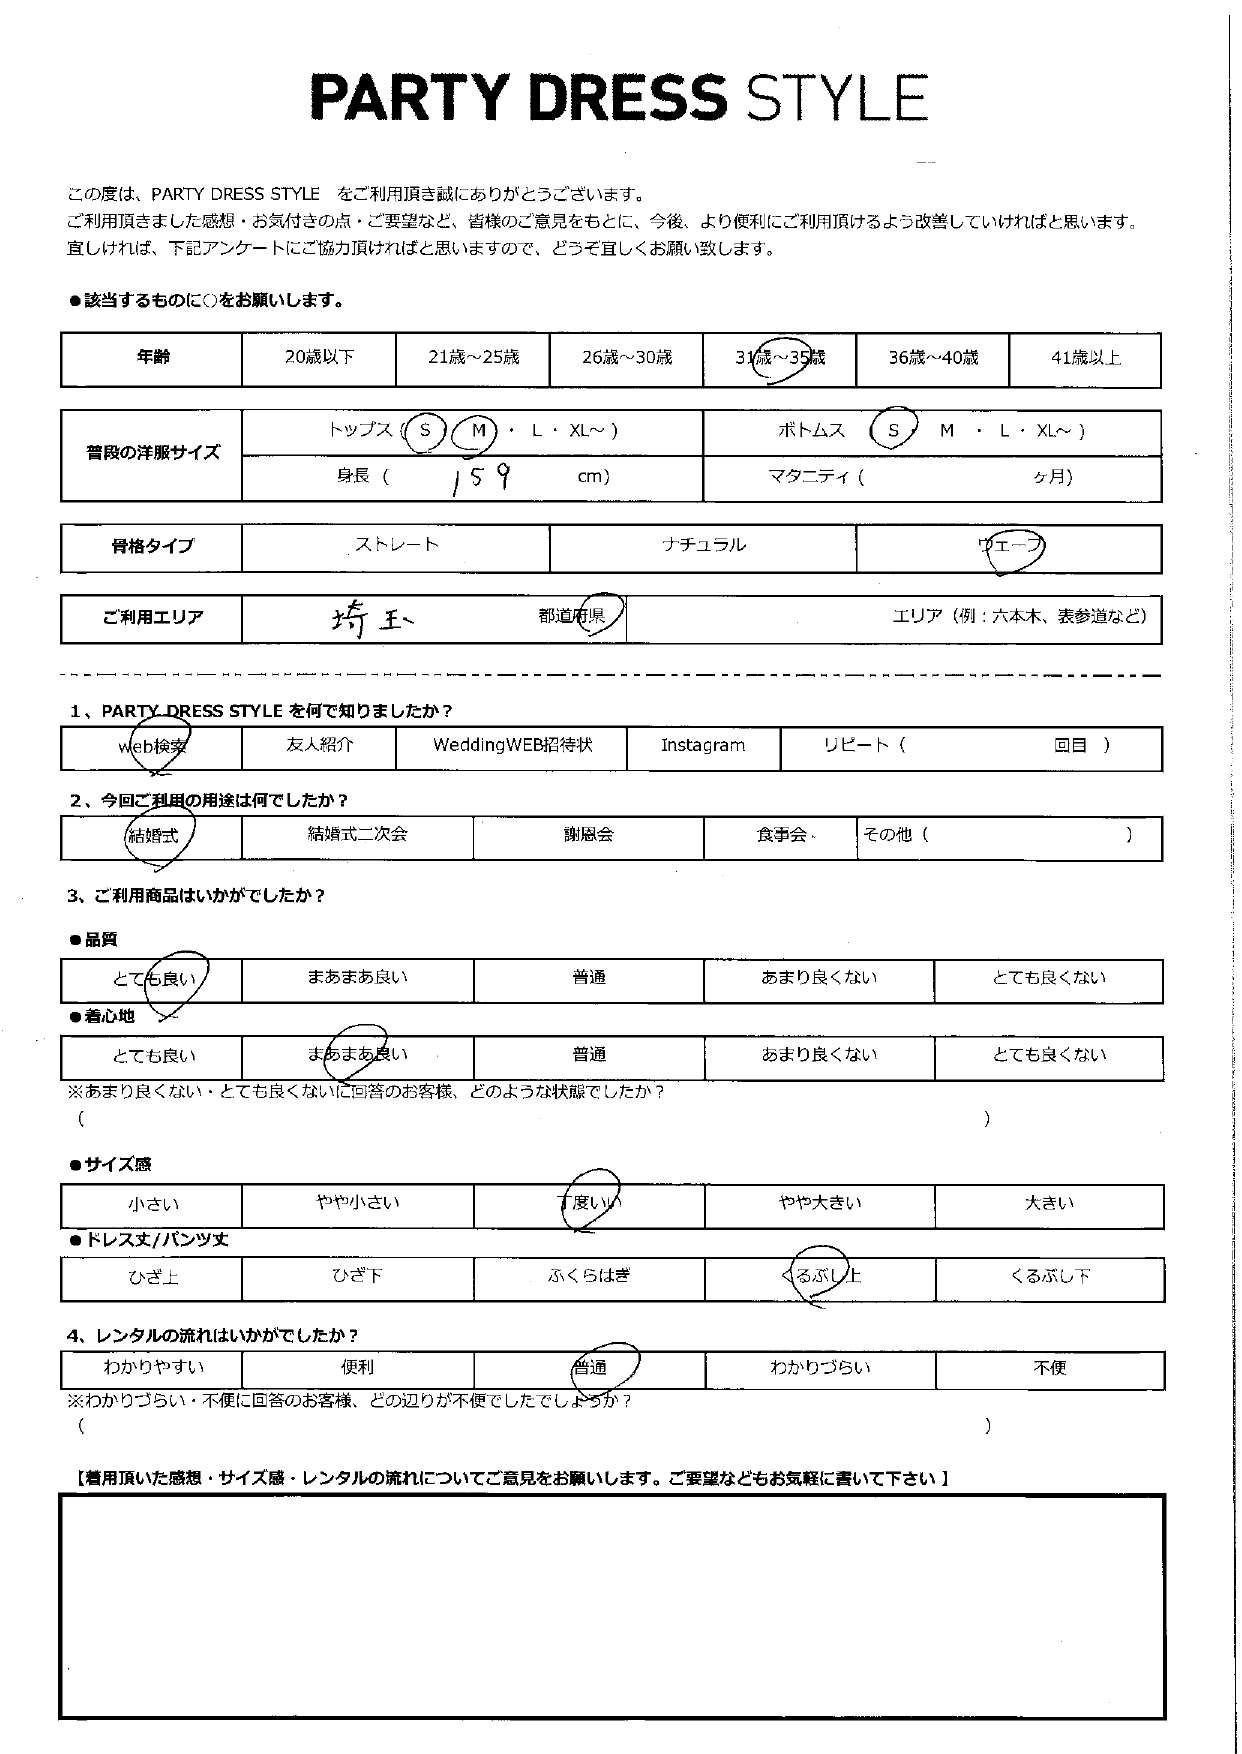 PARTY DRESS STYLE
この度は、PARTY DRESS STYLE をご利用頂き誠にありがとうございます。
ご利用頂きました感想・お気付きの点・ご要望など、皆様のご意見をもとに、今後、より便利にご利用頂けるよう改善していければと思います。
宜しければ、下記アンケートにご協力頂ければと思いますので、どうぞ宜しくお願い致します。
●該当するものに○をお願いします。
年齢 20歳以下 21歳～25歳 26歳～30歳 31歳～35歳 36歳～40歳 41歳以上
普段の洋服サイズ
トップス ( S M ・ L ・ XL～ ) ボトムス ( S M ・ L ・ XL～ )
身長 ( 159 cm) マタニティ ( ヶ月)
骨格タイプ ストレート ナチュラル ウェーブ
ご利用エリア 埼玉 都道府県 エリア（例：六本木、表参道など）
1、PARTY DRESS STYLE を何で知りましたか？
web検索 友人紹介 WeddingWEB招待状 Instagram リピート ( 回目 )
2、今回ご利用の用途は何でしたか？
結婚式 結婚式二次会 謝恩会 食事会 その他 ( )
3、ご利用商品はいかがでしたか？
●品質
とても良い まあまあ良い 普通 あまり良くない とても良くない
●着心地
とても良い まあまあ良い 普通 あまり良くない とても良くない
※あまり良くない・とても良くないに回答のお客様、どのような状態でしたか？
( )
●サイズ感
小さい やや小さい 丁度いい やや大きい 大きい
●ドレス丈/パンツ丈
ひざ上 ひざ下 ふくらはぎ くるぶし上 くるぶし下
4、レンタルの流れはいかがでしたか？
わかりやすい 便利 普通 わかりづらい 不便
※わかりづらい・不便に回答のお客様、どの辺りが不便でしたでしょうか？
( )
【着用頂いた感想・サイズ感・レンタルの流れについてご意見をお願いします。ご要望などもお気軽に書いて下さい】